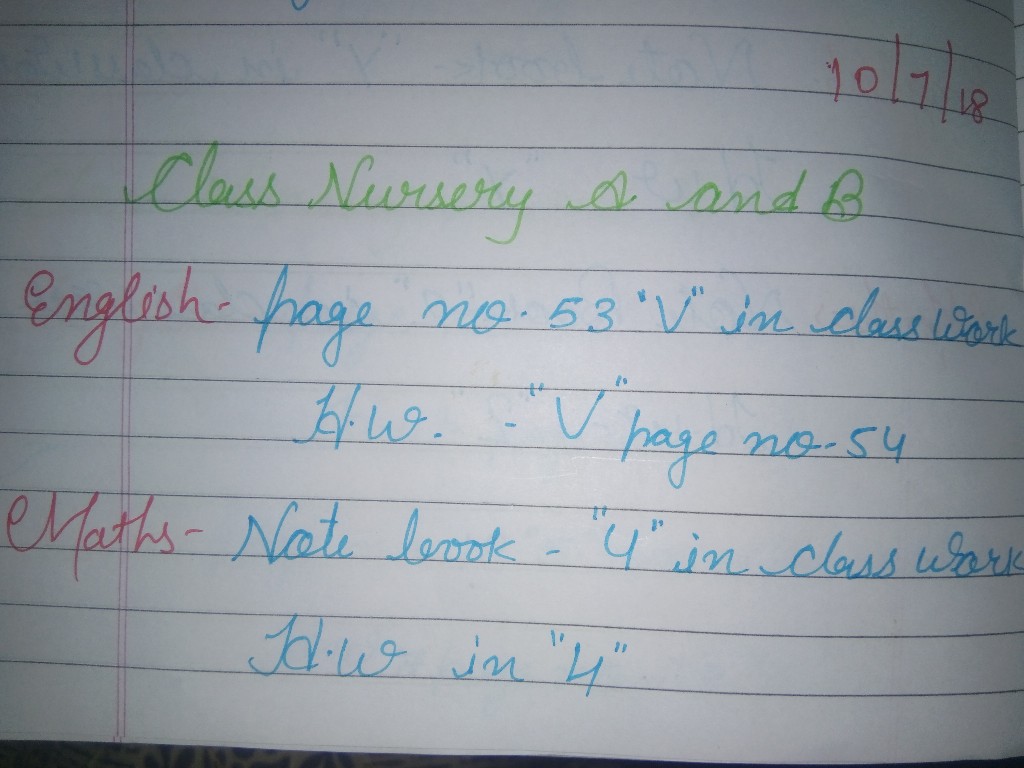 10/7/18
Class Nursery A and B
English- page no. 53 "V" in class work
H.W. - "V" page no-54
Maths- Note book - "4" in class work
H.W in "4"